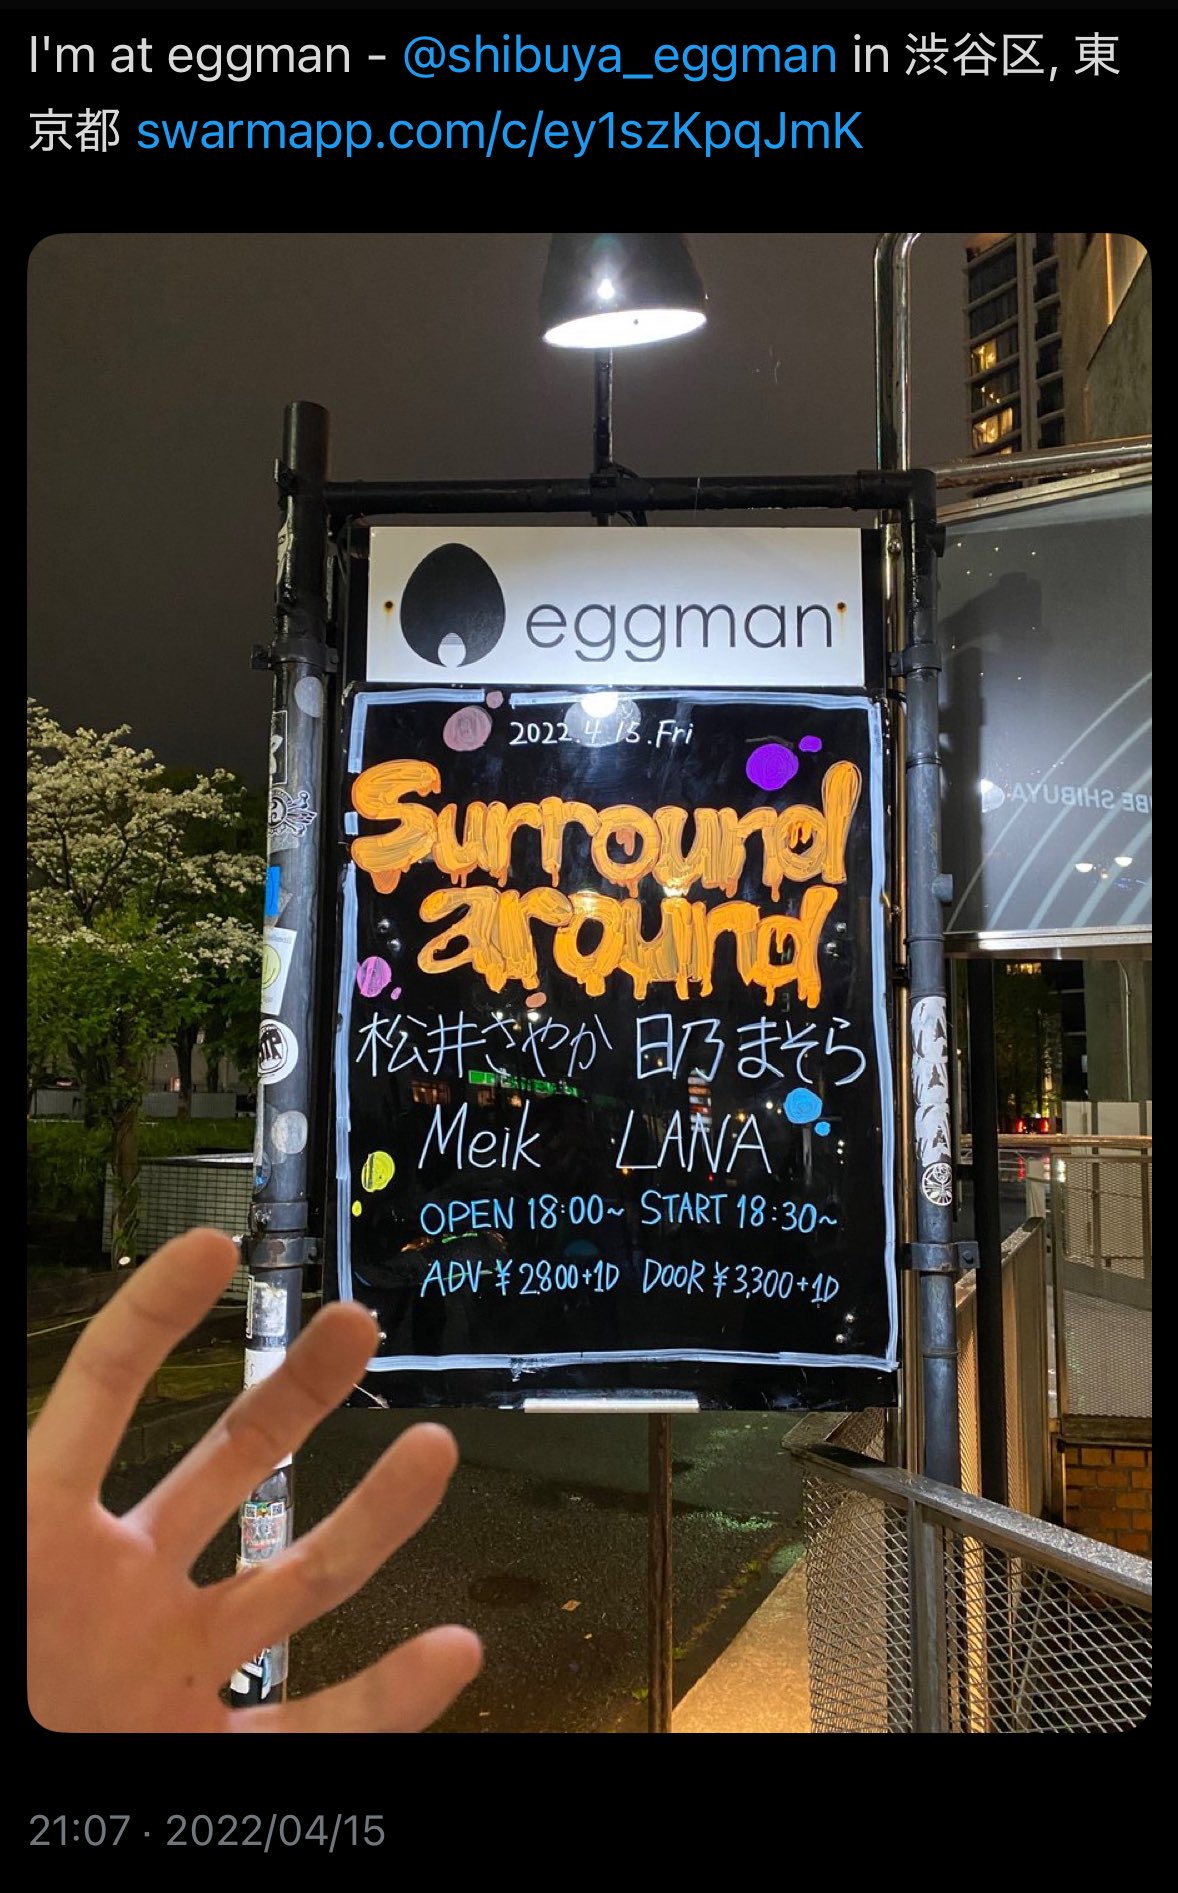 I'm at eggman - @shibuya_eggman in 渋谷区, 東
京都 swarmapp.com/c/ey1szKpqJmK
eggman
2022.4.15.Fri
Surround
around
松井さやか 日乃まそら
Meik LANA
OPEN 18:00~ START 18:30~
ADV ¥2800+1D DOOR ¥3,300+1D
BE SHIBUYA
21:07 · 2022/04/15